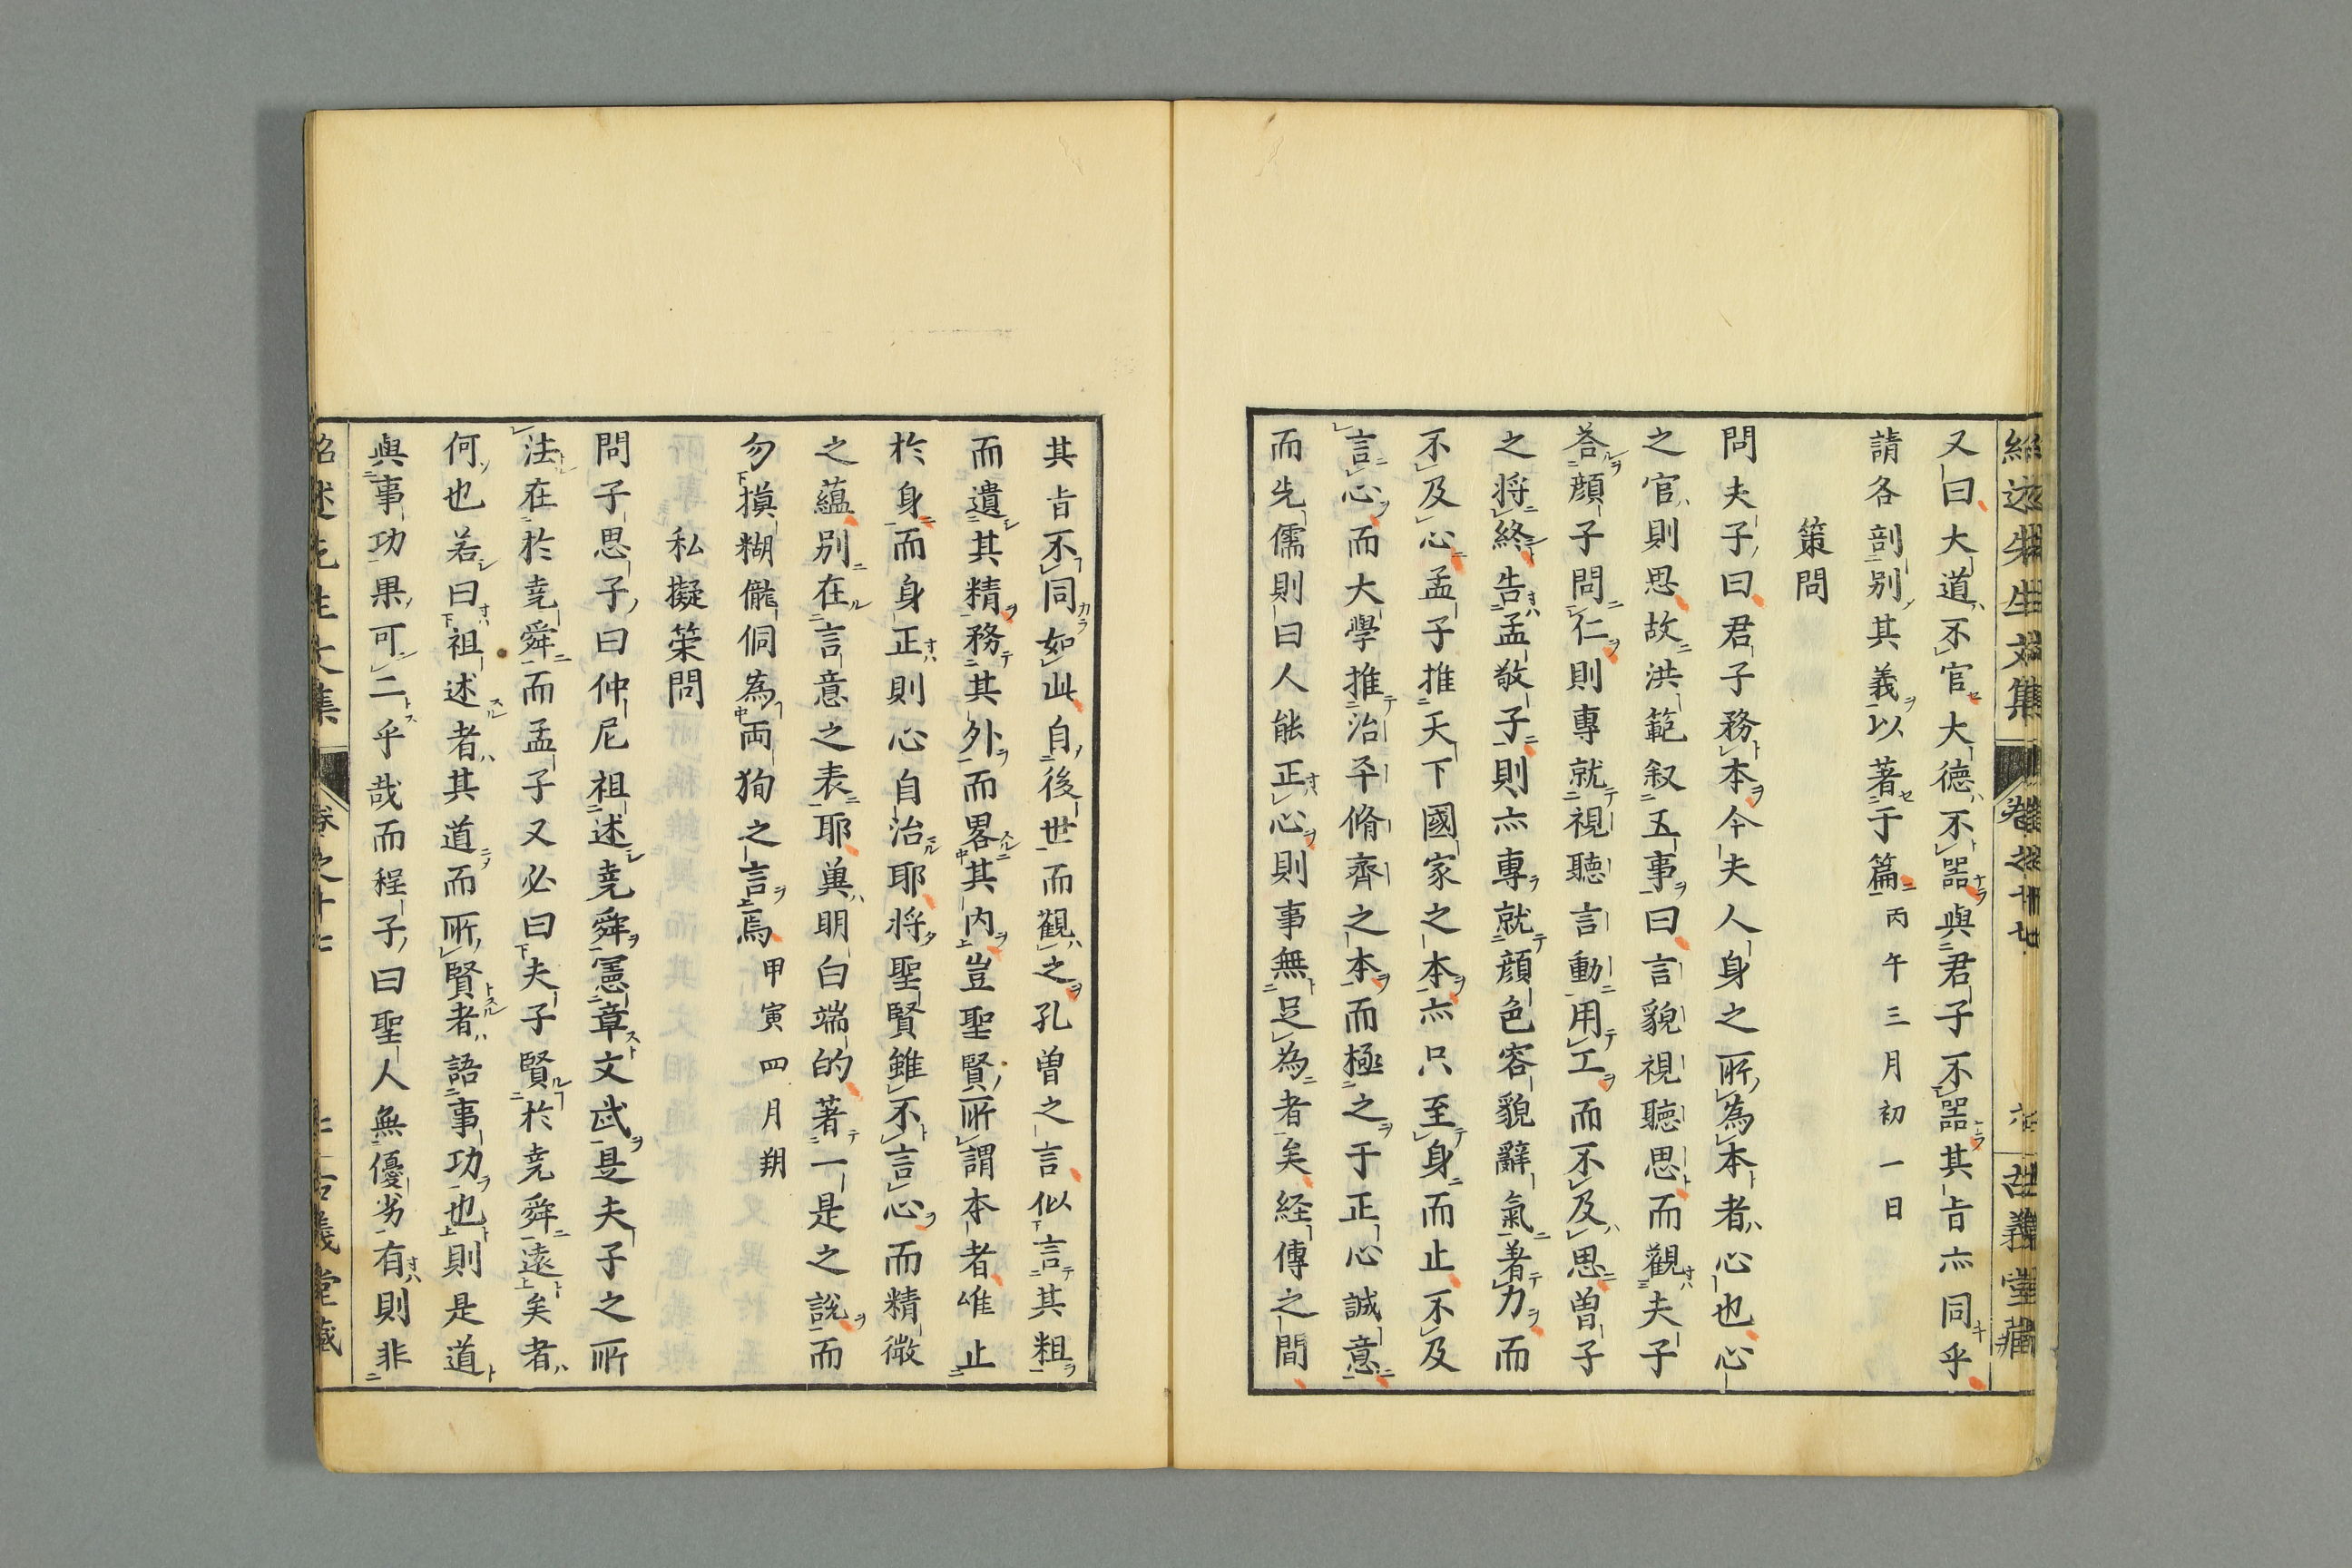 又曰大道不官大徳不器與君子不器其旨亦同乎
請各剖別其義以著于篇丙午三月初一日
策問
問夫子曰君子務本今夫人身之所為本者心也心
之官則思故洪範叙五事曰言貌視聽思而觀夫子
荅顔子問仁則專就視聽言動用工而不及思曽子
之将終告孟敬子則亦專就顔色容貌辭氣著力而
不及心孟子推天下國家之本亦只至身而止不及
言心而大學推治平脩齊之本而極之于正心誠意
而先儒則曰人能正心則事無足為者矣経傳之間
其旨不同如此自後世而觀之孔曽之言似言其粗
而遺其精務其外而畧其内豈聖賢所謂本者唯止
於身而身正則心自治耶将聖賢雖不言心而精微
之蘊別在言意之表耶奠明白端的著一是之說而
勿摸糊儱侗為両狥之言焉甲寅四月朔
私擬策問
問子思子曰仲尼祖述堯舜憲章文武是夫子之所
法在於堯舜而孟子又必曰夫子賢於堯舜遠矣者
何也若曰祖述者其道而所賢者語事功也則是道
與事功果可二乎哉而程子曰聖人無優劣有則非